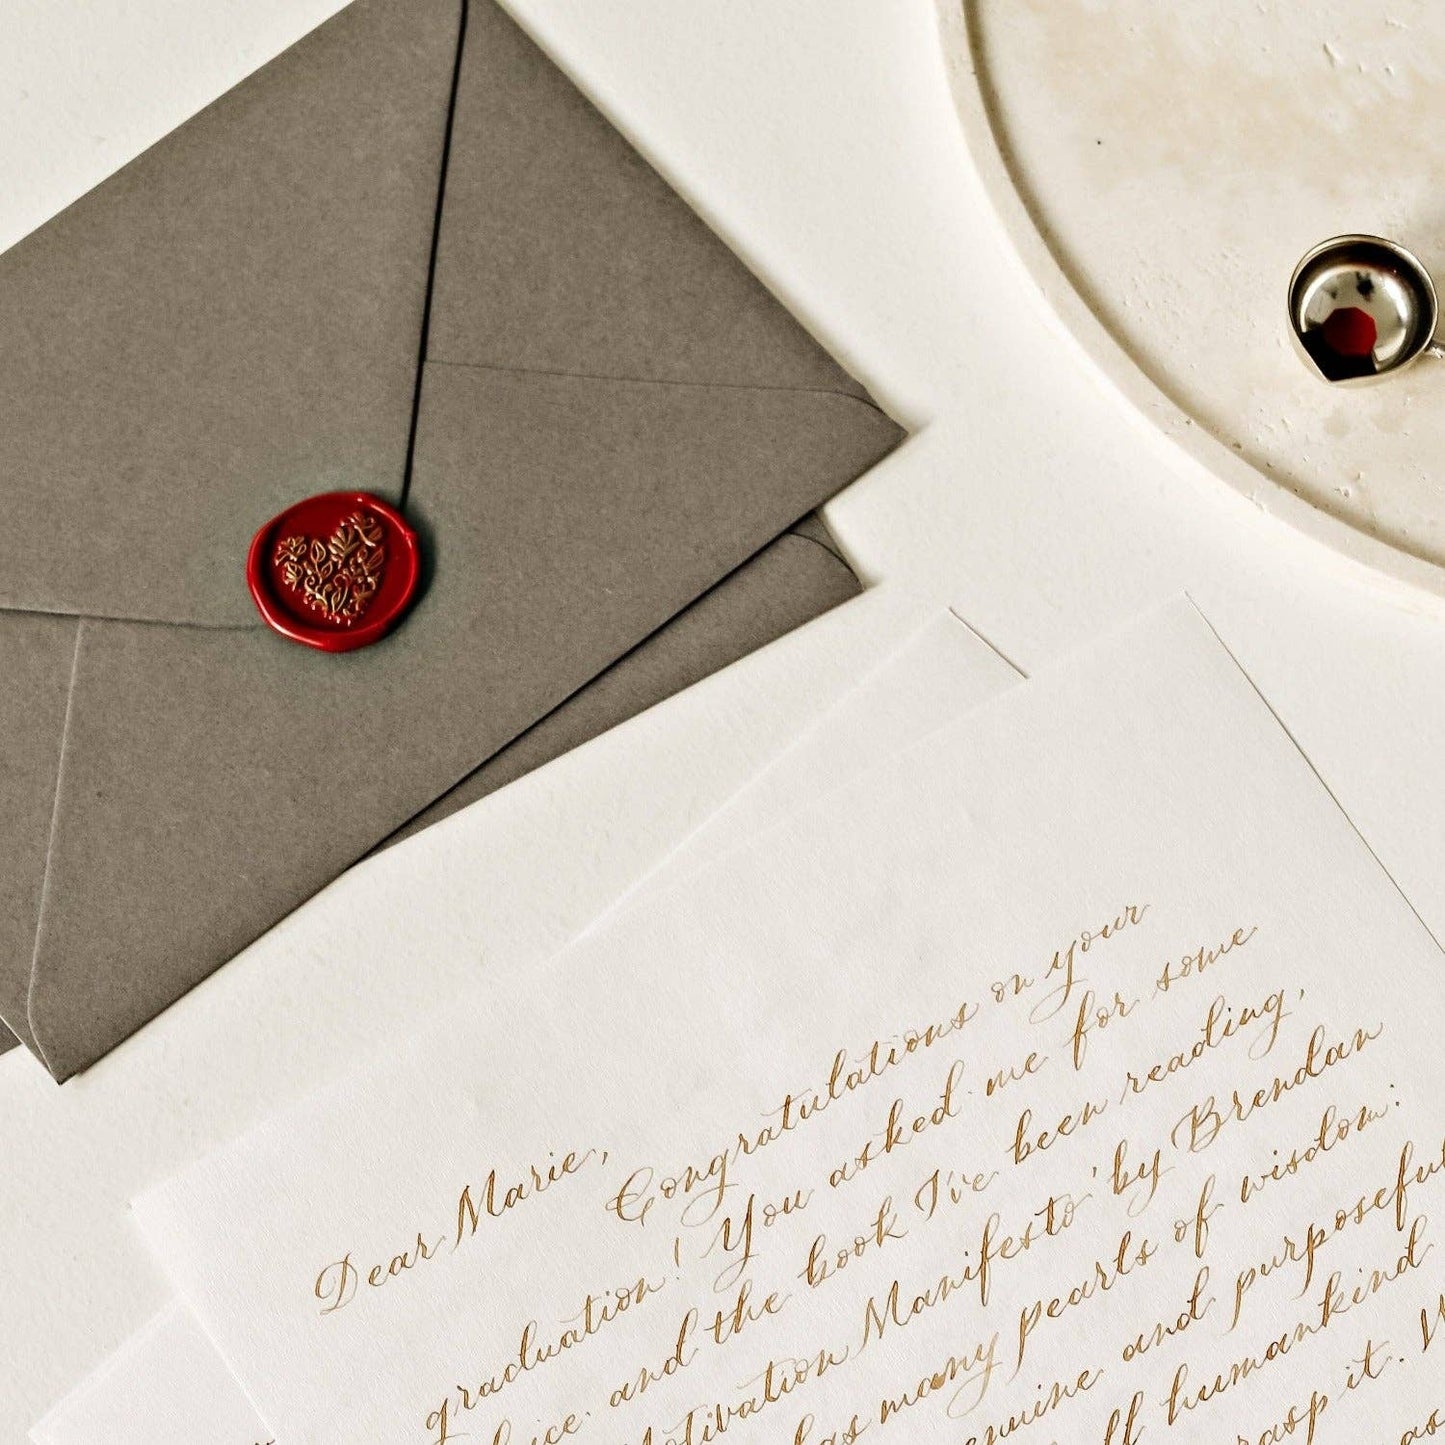 Dear Marie,
Congratulations on your
graduation! You asked me for some
and the book I've been reading,
Motivation Manifesto' by Brendan
has many pearls of wisdom:
genuine and purposeful
humankind
it.
as